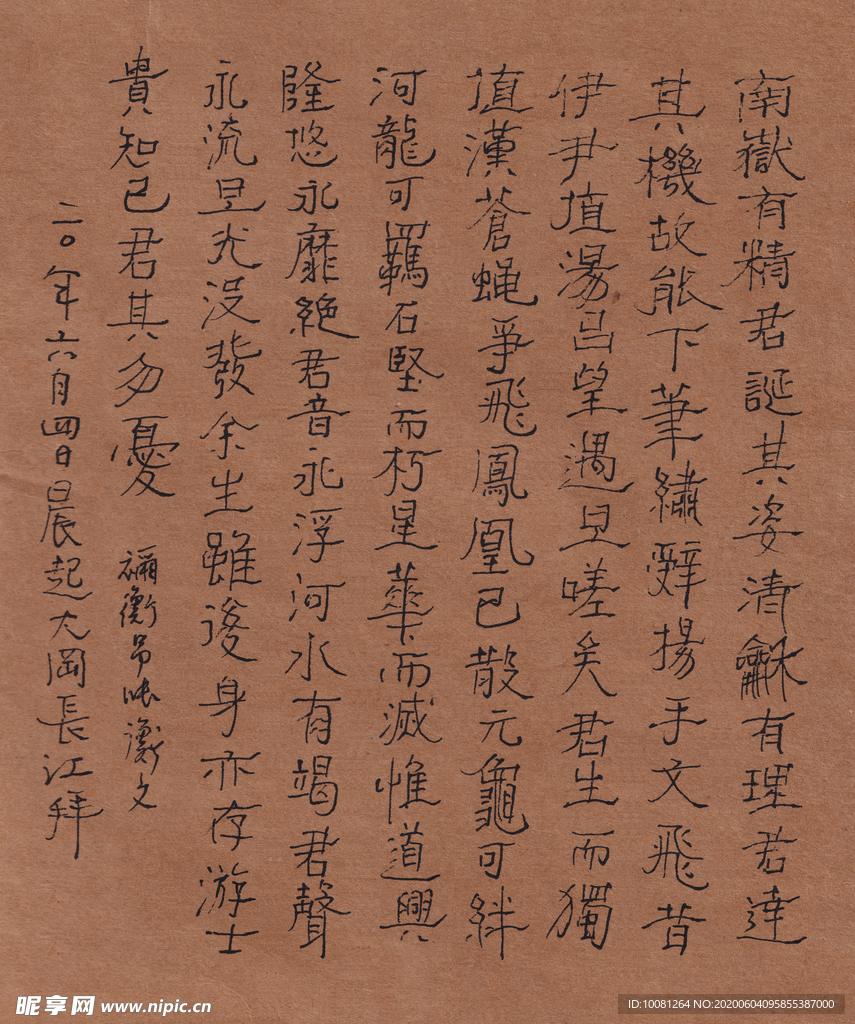 南嶽有精君誕其姿清龢有理君達
其機故能下筆繡辭揚手文飛昔
伊尹值湯呂望遇旦嗟矣君生而獨
值漢蒼蝇爭飛鳳凰已散元龜可絆
河龍可羈石堅而朽星華而滅惟道興
隆悠永靡絕君音永浮河水有竭君聲
永流旦光沒發余生雖後身亦存游士
貴知己君其勿憂 禰衡吊張衡文
二〇年六月四日晨起大岡長江拜
昵享网 www.nipic.cn
ID:10081264 NO:20200604095855387000